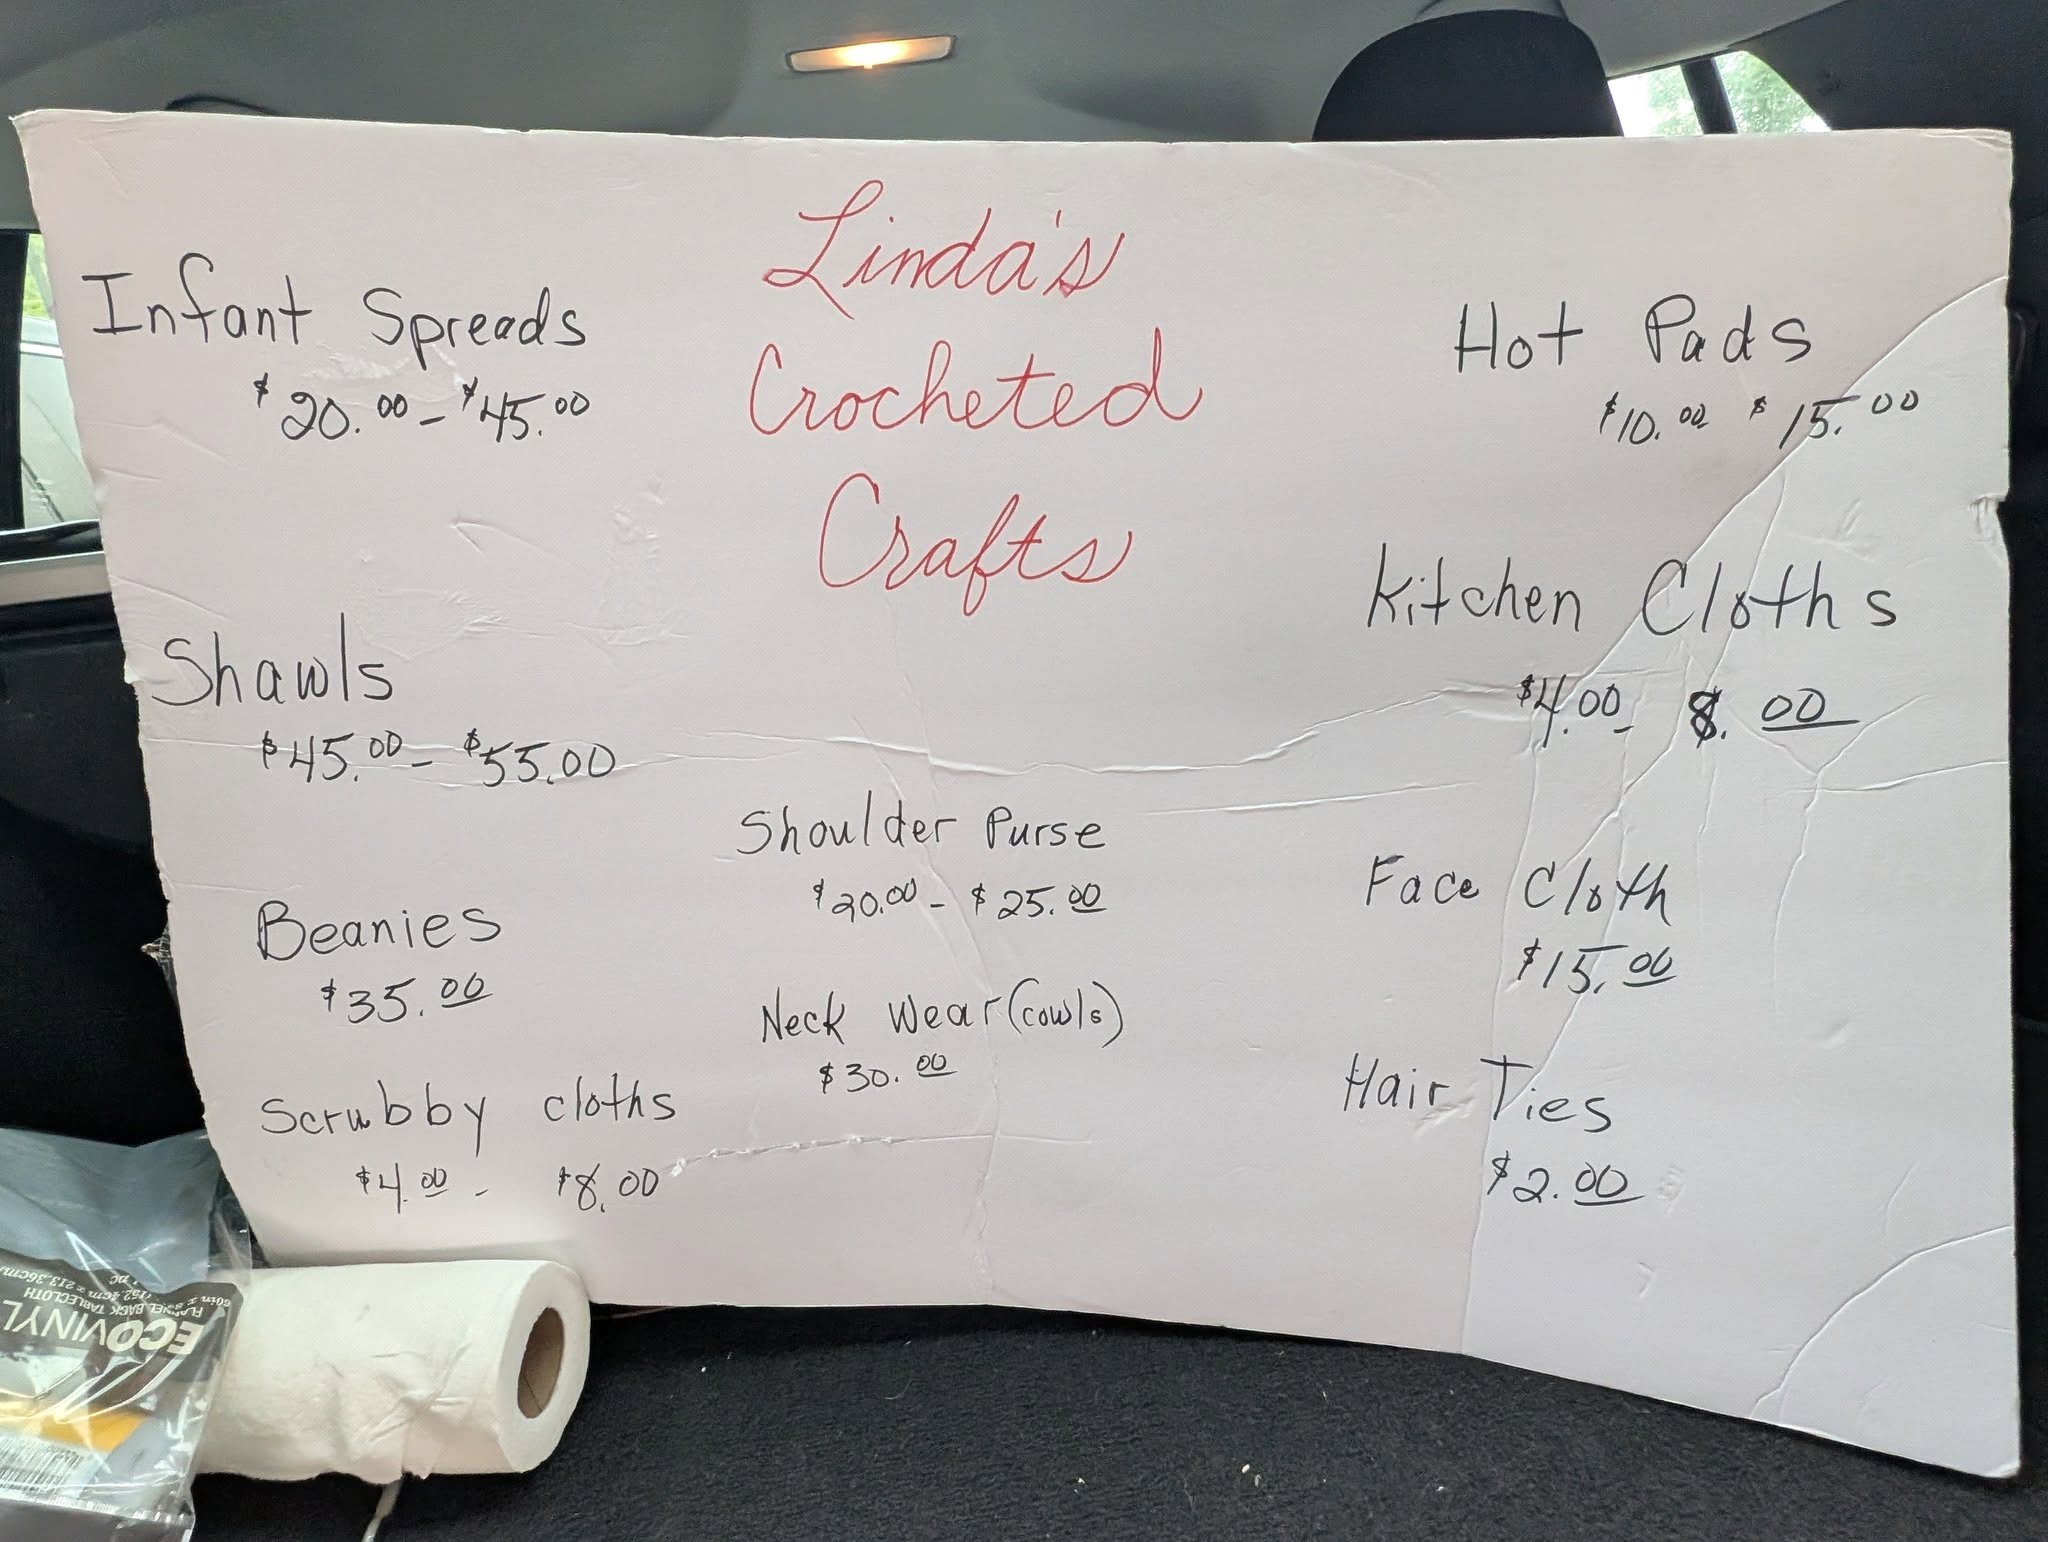 Linda's
Crocheted
Crafts
Infant Spreads
$20.00 - $45.00
Shawls
$45.00 - $55.00
Beanies
$35.00
Scrubby cloths
$4.00 - $8.00
Shoulder Purse
$20.00 - $25.00
Neck Wear (cowls)
$30.00
Hot Pads
$10.00 $15.00
Kitchen Cloths
$4.00 - 8.00
Face Cloth
$15.00
Hair Ties
$2.00
ECOVINYL
FLANNEL BACK TABLECLOTH